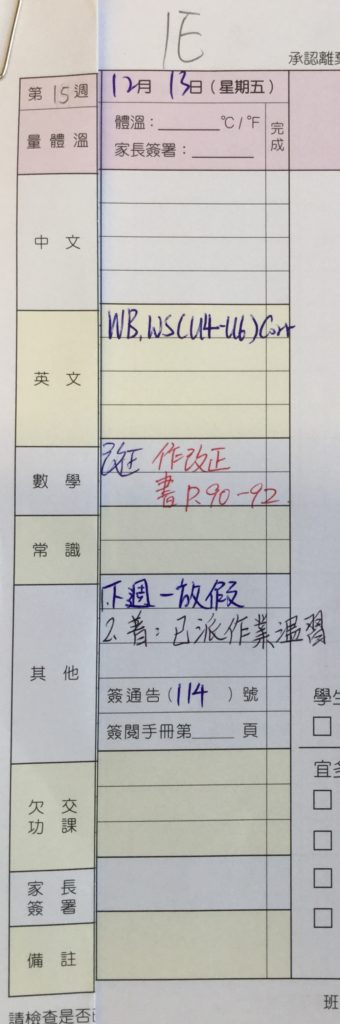 1E
承認離
第15週
12月13日(星期五)
量體溫
體溫：______℃/℉
家長簽署：______
完成
中文
英文
WB, WS(U4-U6)Corr
數學
作改正
書P.90-92
常識
其他
1.下週一放假
2.普：已派作業溫習
簽通告(114)號
簽閱手冊第____頁
學生
宜多
欠交
功課
家長
簽署
備註
班
請檢查是否